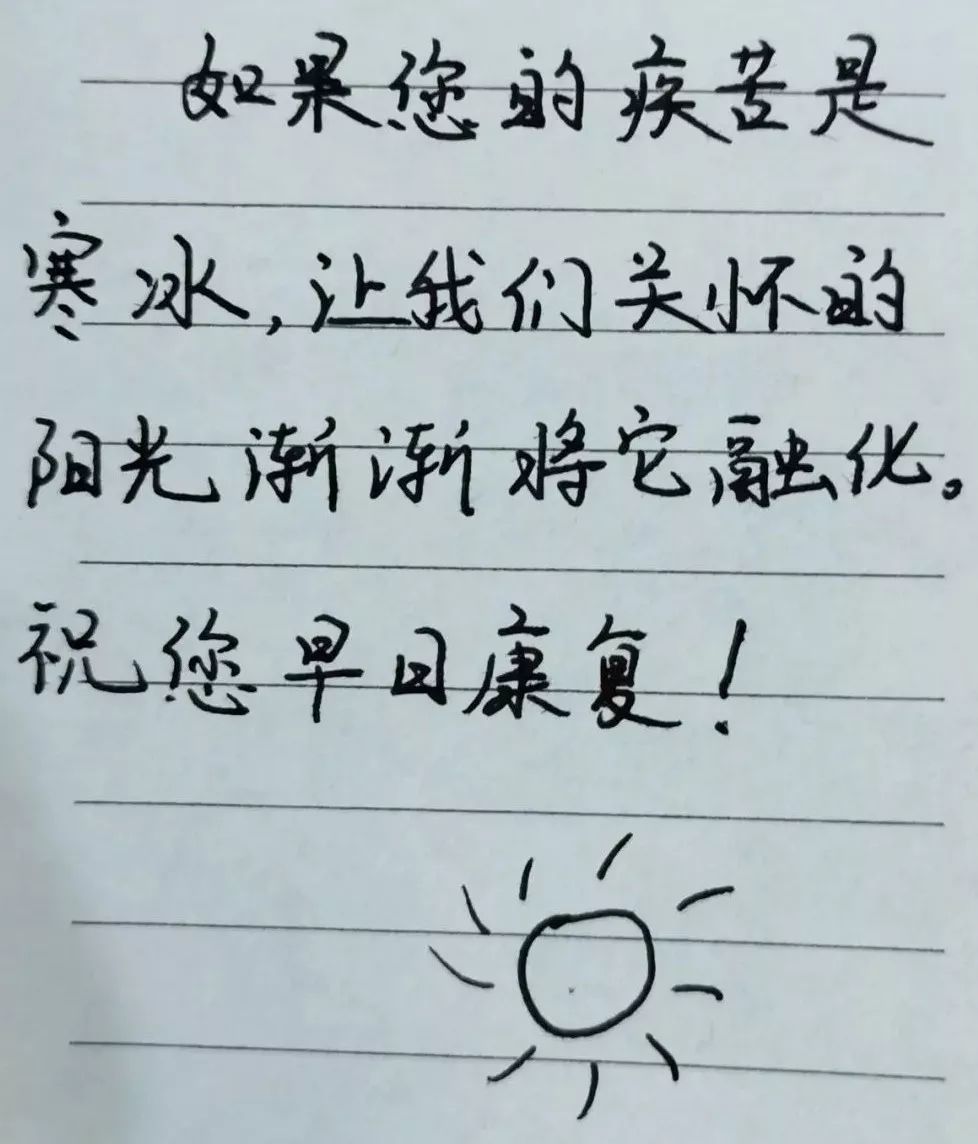 如果您的疾苦是
寒冰,让我们关怀的
阳光渐渐将它融化。
祝您早日康复!